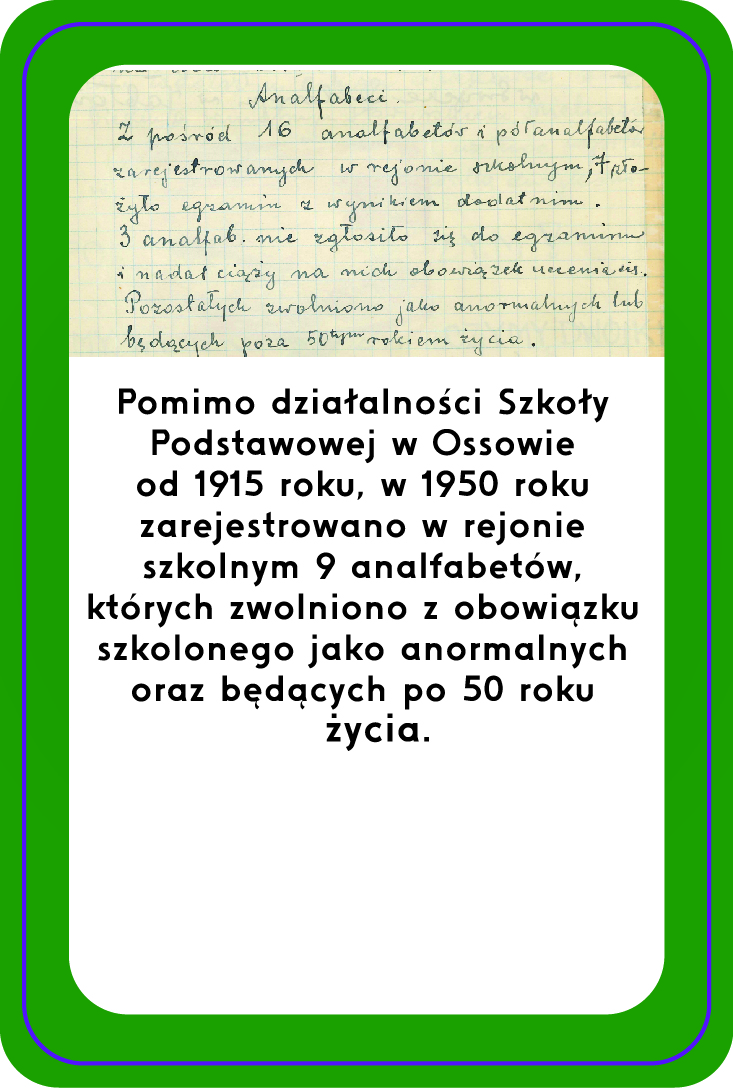 Analfabeci.
Z pośród 16 analfabetów i półanalfabetów
zarejestrowanych w rejonie szkolnym, 7 zło-
żyło egzamin z wynikiem dodatnim.
3 analfab. nie zgłosiło się do egzaminu
i nadal ciąży na nich obowiązek uczenia się.
Pozostałych zwolniono jako anormalnych lub
będących poza 50tym rokiem życia.
Pomimo działalności Szkoły
Podstawowej w Ossowie
od 1915 roku, w 1950 roku
zarejestrowano w rejonie
szkolnym 9 analfabetów,
których zwolniono z obowiązku
szkolonego jako anormalnych
oraz będących po 50 roku
życia.